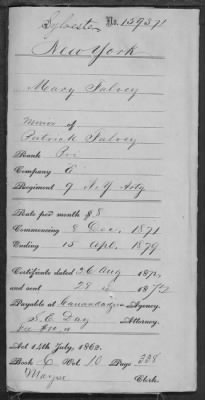 Sylvester No. 159371
New York
Mary Falvey
Minor of
Patrick Falvey
Rank Pvt
Company E
Regiment 9 N.Y. Arty
Rate per month $8
Commencing 8 Dec. 1871
Ending 15 Apl. 1879
Certificate dated 26 Aug 1872,
and sent 28 " 1872
Payable at Canandaigua Agency.
S.C. Day Attorney.
Act 14th July, 1862.
Book C Vol. 10 Page 338
Clerk.